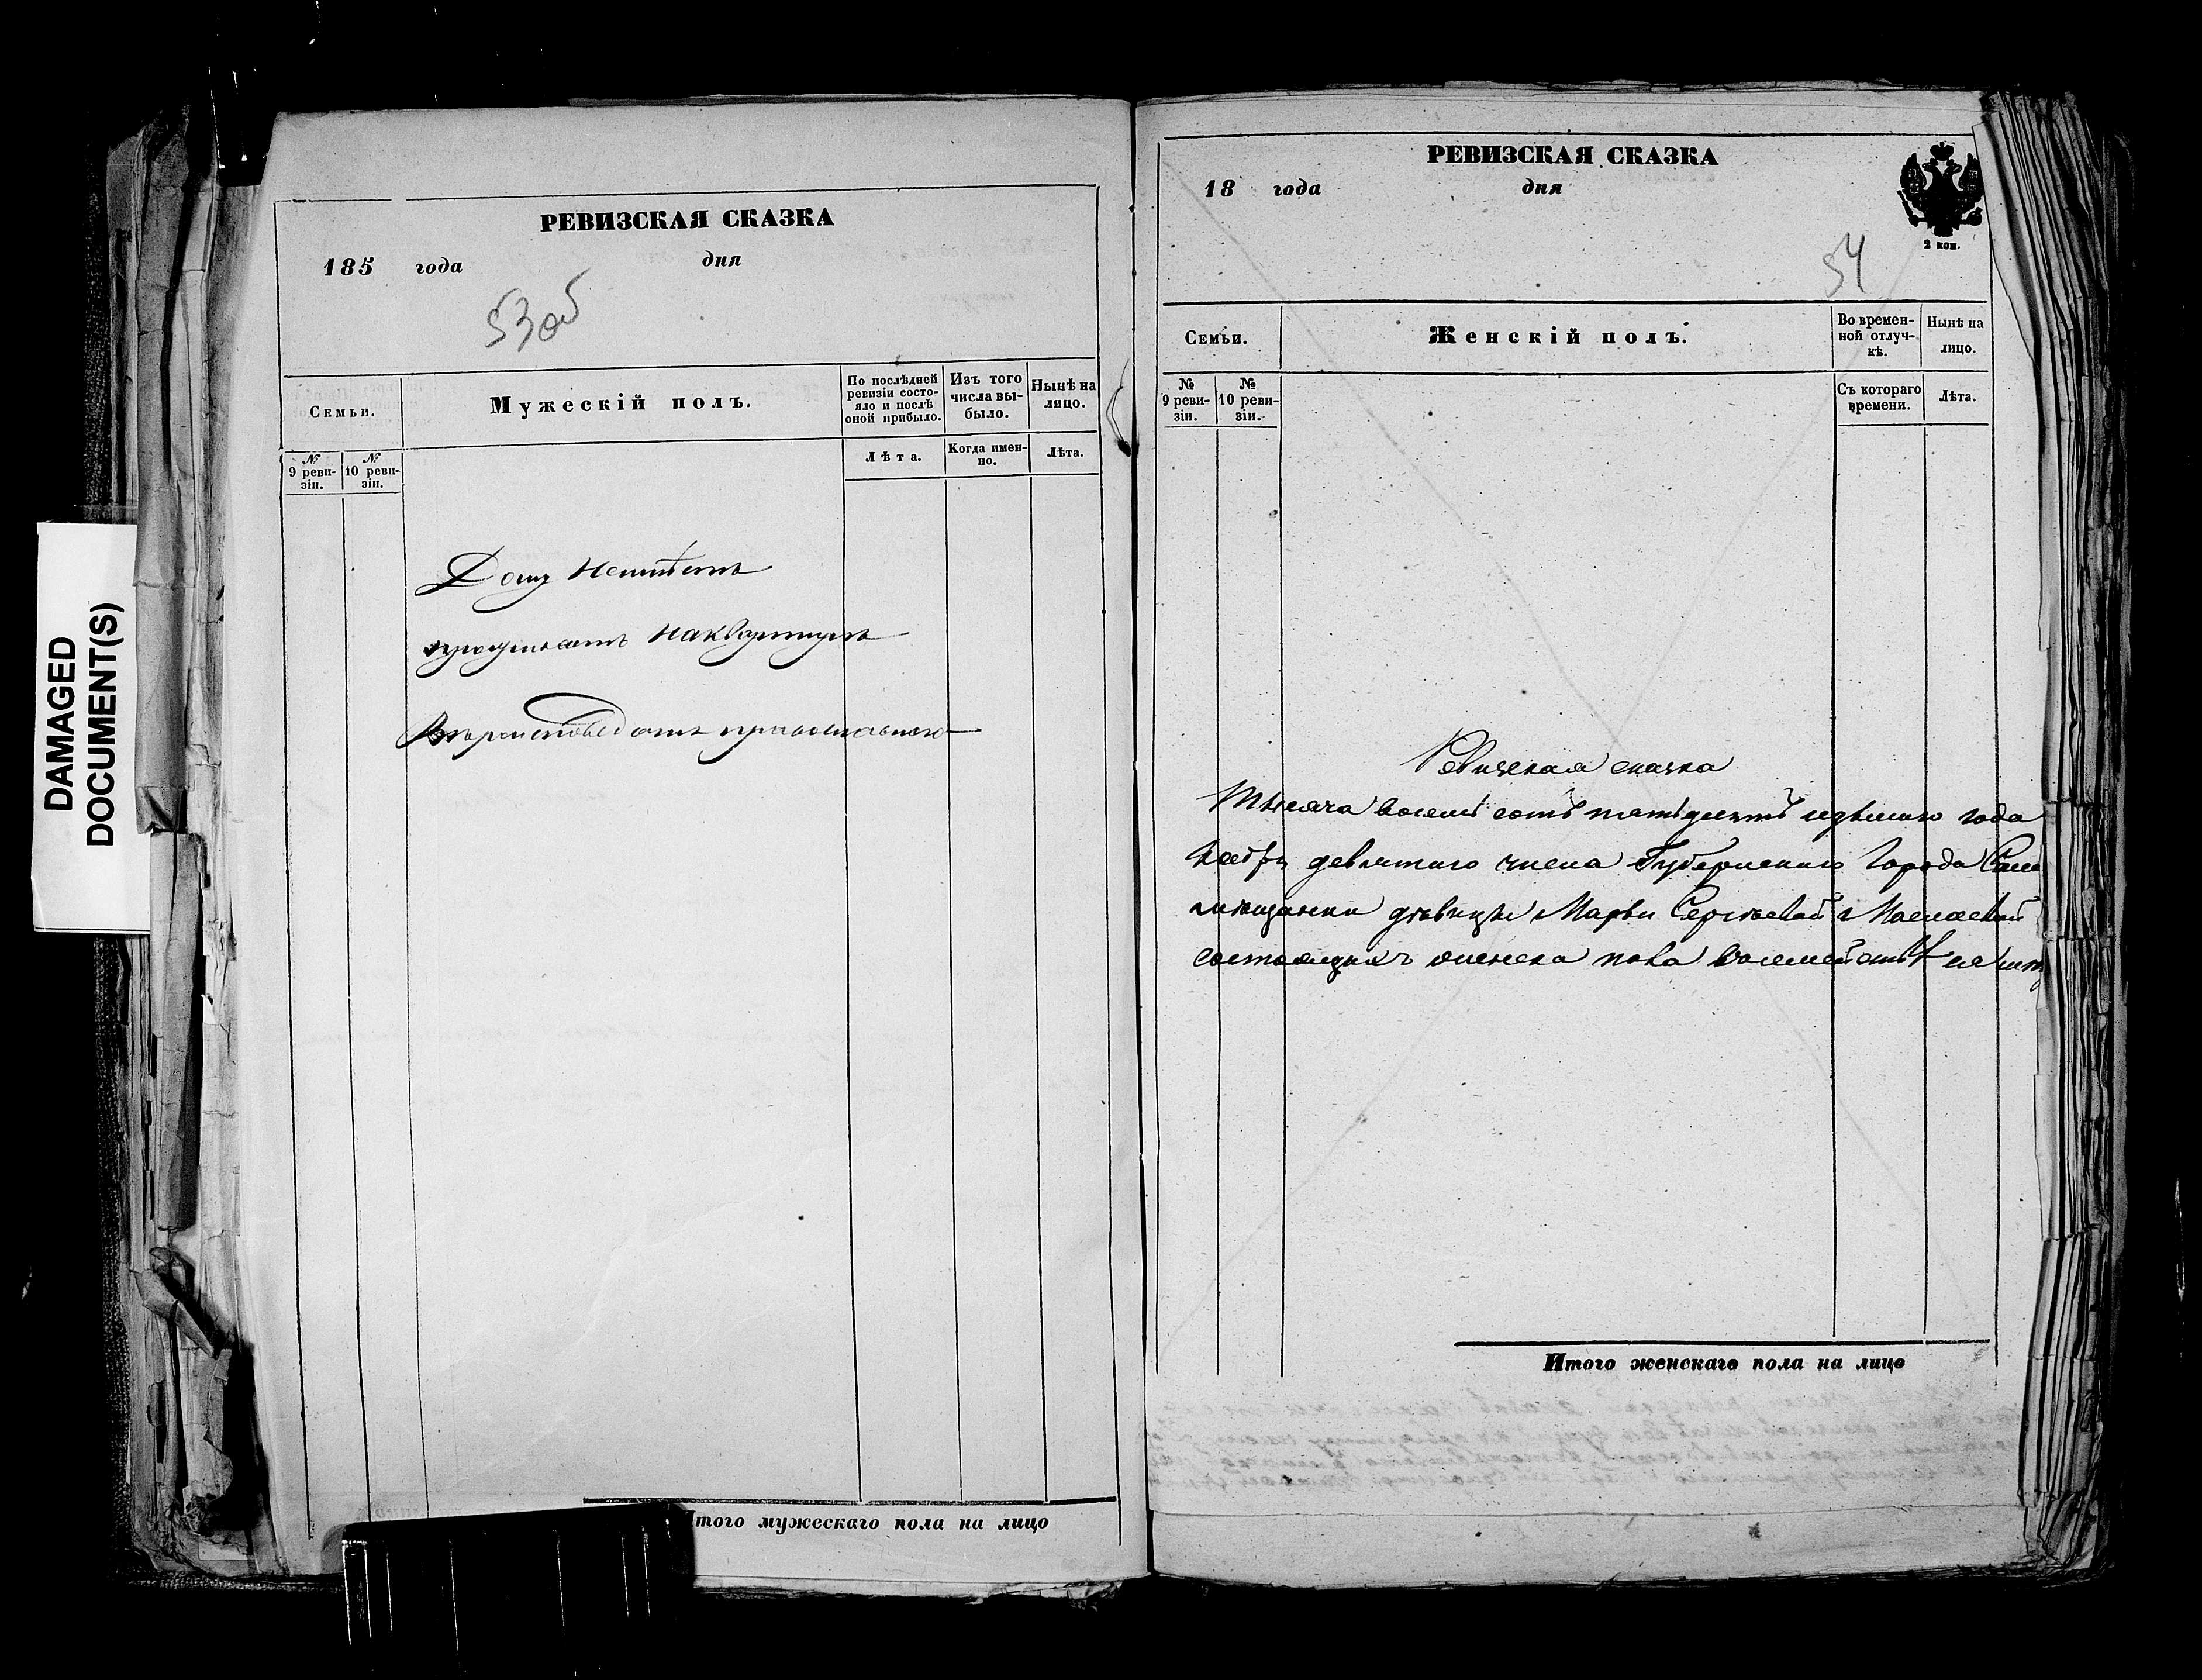 DAMAGED
DOCUMENT(S)
РЕВИЗСКАЯ СКАЗКА
185 года дня
53об
Семьи.
Мужескій полъ.
По послѣдней ревизіи состояло и послѣ оной прибыло.
Изъ того числа выбыло.
Нынѣ на лицо.
№ 9 ревизіи.
№ 10 ревизіи.
Лѣта.
Когда именно.
Лѣта.
Дому Неимѣетъ
проживаетъ Наквартирѣ
Итого мужескаго пола на лицо
РЕВИЗСКАЯ СКАЗКА
18 года дня
2 коп.
54
Семьи.
Женскій полъ.
Во временной отлучкѣ.
Нынѣ на лицо.
№ 9 ревизіи.
№ 10 ревизіи.
Съ котораго времени.
Лѣта.
Ревизская сказка
Тысяча восемь сотъ пятьдесятъ седьмаго года
девятаго числа Губернскаго Города
мещанки девицы Марьи Сергѣевой
состоящихъ пола
Итого женскаго пола на лицо